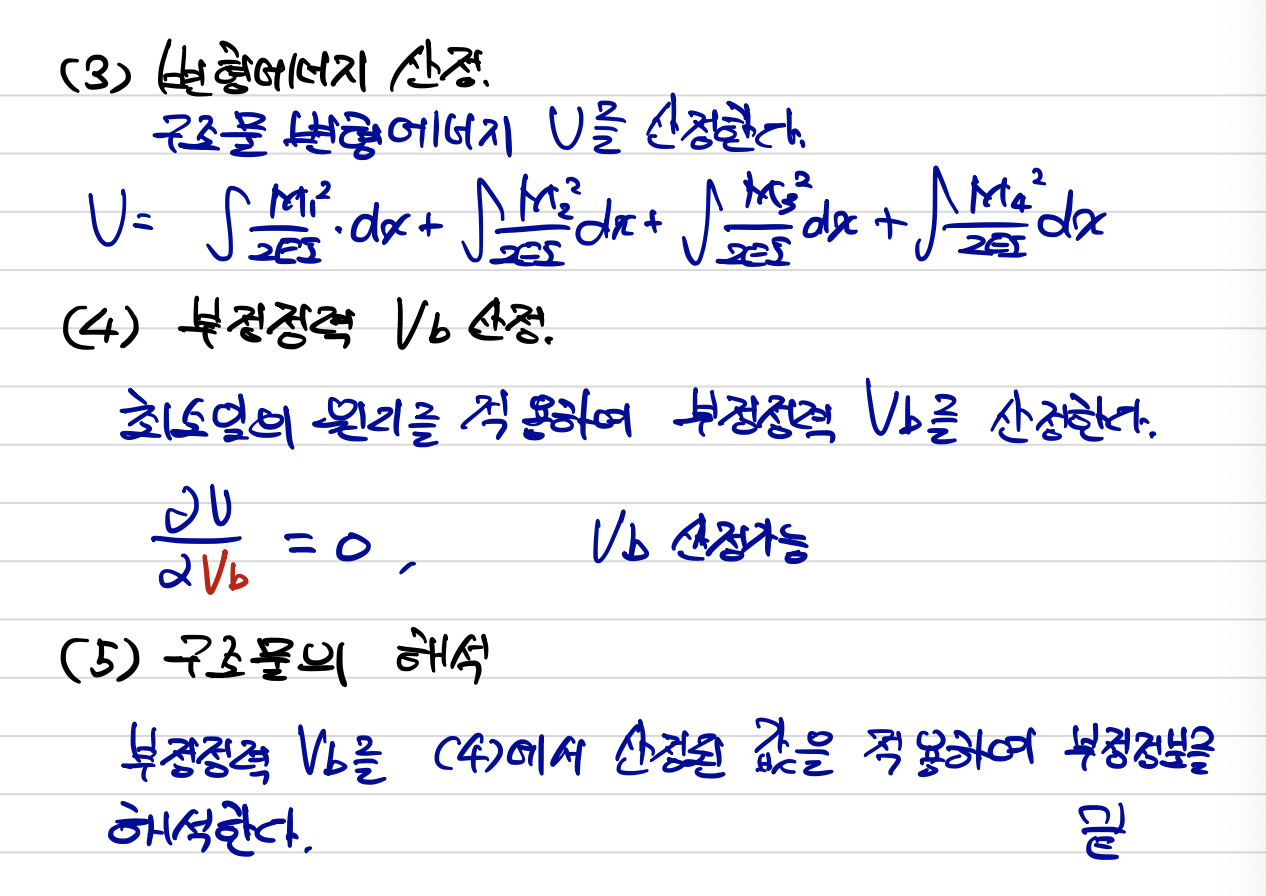 (3) 변형에너지 산정.
구조물 변형에너지 U를 산정한다.
U = ∫ M₁²/2EI · dx + ∫ M₂²/2EI dx + ∫ M₃²/2EI dx + ∫ M₄²/2EI dx
(4) 부정정력 Vb 산정.
최소일의 원리를 적용하여 부정정력 Vb를 산정한다.
∂U/∂Vb = 0, Vb 산정가능
(5) 구조물의 해석
부정정력 Vb를 (4)에서 산정된 값을 적용하여 부정정보를
해석한다. 끝